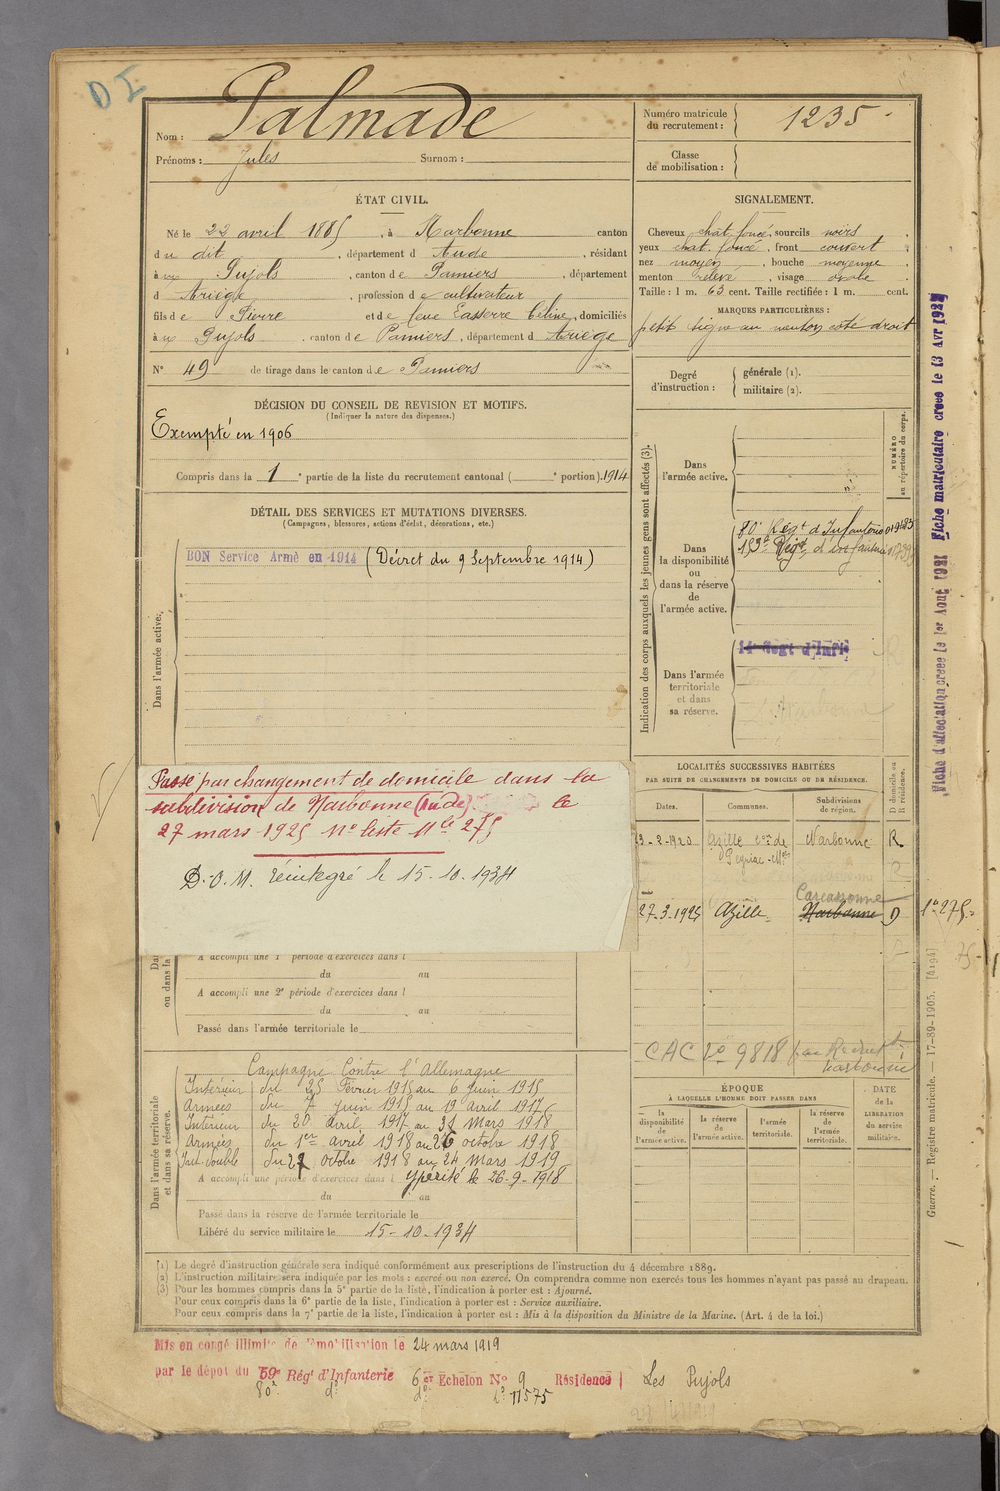 D I
Nom : Palmade
Prénoms : Jules Surnom :
Numéro matricule du recrutement : 1235
Classe de mobilisation :
ÉTAT CIVIL.
Né le 22 avril 1885, à Narbonne canton
du dit, département d Aude, résidant
à Pujols, canton de Pamiers, département
d Ariège, profession de cultivateur
fils de Pierre et de feue Lasserre Céline, domiciliés
à Pujols, canton de Pamiers, département d Ariège
N° 49 de tirage dans le canton de Pamiers
SIGNALEMENT.
Cheveux chat. foncé, sourcils noirs,
yeux chat. foncé, front couvert,
nez moyen, bouche moyenne,
menton relevé, visage ovale
Taille : 1 m. 63 cent. Taille rectifiée : 1 m. cent.
MARQUES PARTICULIÈRES :
petit signe au menton coté droit
Degré d'instruction : générale (1).
militaire (2).
DÉCISION DU CONSEIL DE REVISION ET MOTIFS.
(Indiquer la nature des dispenses.)
Exempté en 1906
Compris dans la 1e partie de la liste du recrutement cantonal ( e portion). 1914
DÉTAIL DES SERVICES ET MUTATIONS DIVERSES.
(Campagnes, blessures, actions d'éclat, décorations, etc.)
Dans l'armée active.
BON Service Armé en 1914 (Décret du 9 Septembre 1914)
Indication des corps auxquels les jeunes gens sont affectés (3).
NUMÉRO au répertoire du corps.
Dans l'armée active.
Dans la disponibilité ou dans la réserve de l'armée active.
80e Régt d'Infanterie
153e Régt d'infanterie
Dans l'armée territoriale et dans sa réserve.
14e Regt d'Infie
Passé par changement de domicile dans la
subdivision de Narbonne (Aude) le
27 mars 1925 No liste Mle 275
D.O.M. réintegré le 15-10-1934
LOCALITÉS SUCCESSIVES HABITÉES
PAR SUITE DE CHANGEMENTS DE DOMICILE OU DE RÉSIDENCE.
Dates. Communes. Subdivisions de région. D domicile ou R résidence.
3-2-1920 Azille con de Narbonne R
Peyriac-Mois
Carcassonne
27-3-1925 Azille Narbonne D 1e 275
75
CAC 9818
Narbonne
A accompli une 1e période d'exercices dans l
du au
A accompli une 2e période d'exercices dans l
du au
Passé dans l'armée territoriale le
Dans l'armée territoriale et dans sa réserve.
Campagne Contre l'Allemagne
Intérieur du 25 Février 1915 au 6 Juin 1915
Armées du 7 juin 1915 au 19 avril 1917
Intérieur du 20 avril 1917 au 31 Mars 1918
Armées du 1er avril 1918 au 26 octobre 1918
Int. double du 27 octobre 1918 au 24 Mars 1919
A accompli une période d'exercices dans l ypérité le 26-9-1918
du au
Passé dans la réserve de l'armée territoriale le
Libéré du service militaire le 15-10-1934
ÉPOQUE
À LAQUELLE L'HOMME DOIT PASSER DANS
la disponibilité de l'armée active. la réserve de l'armée active. l'armée territoriale. la réserve de l'armée territoriale.
DATE de la LIBÉRATION du service militaire.
(1) Le degré d'instruction générale sera indiqué conformément aux prescriptions de l'instruction du 4 décembre 1889.
(2) L'instruction militaire sera indiquée par les mots : exercé ou non exercé. On comprendra comme non exercés tous les hommes n'ayant pas passé au drapeau.
(3) Pour les hommes compris dans la 5e partie de la liste, l'indication à porter est : Ajourné.
Pour ceux compris dans la 6e partie de la liste, l'indication à porter est : Service auxiliaire.
Pour ceux compris dans la 7e partie de la liste, l'indication à porter est : Mis à la disposition du Ministre de la Marine. (Art. 4 de la loi.)
Mis en congé illimité de démobilisation le 24 mars 1919
par le dépot du 59e Rég' d'Infanterie 6e Echelon No 9 Résidence Les Pujols
80e do do 11575
Fiche d'affectation créée le 1er Aout 1921 Fiche matriculaire créée le 13 Avr 1922
Guerre. — Registre matricule. — 17-89-1905. [4194]